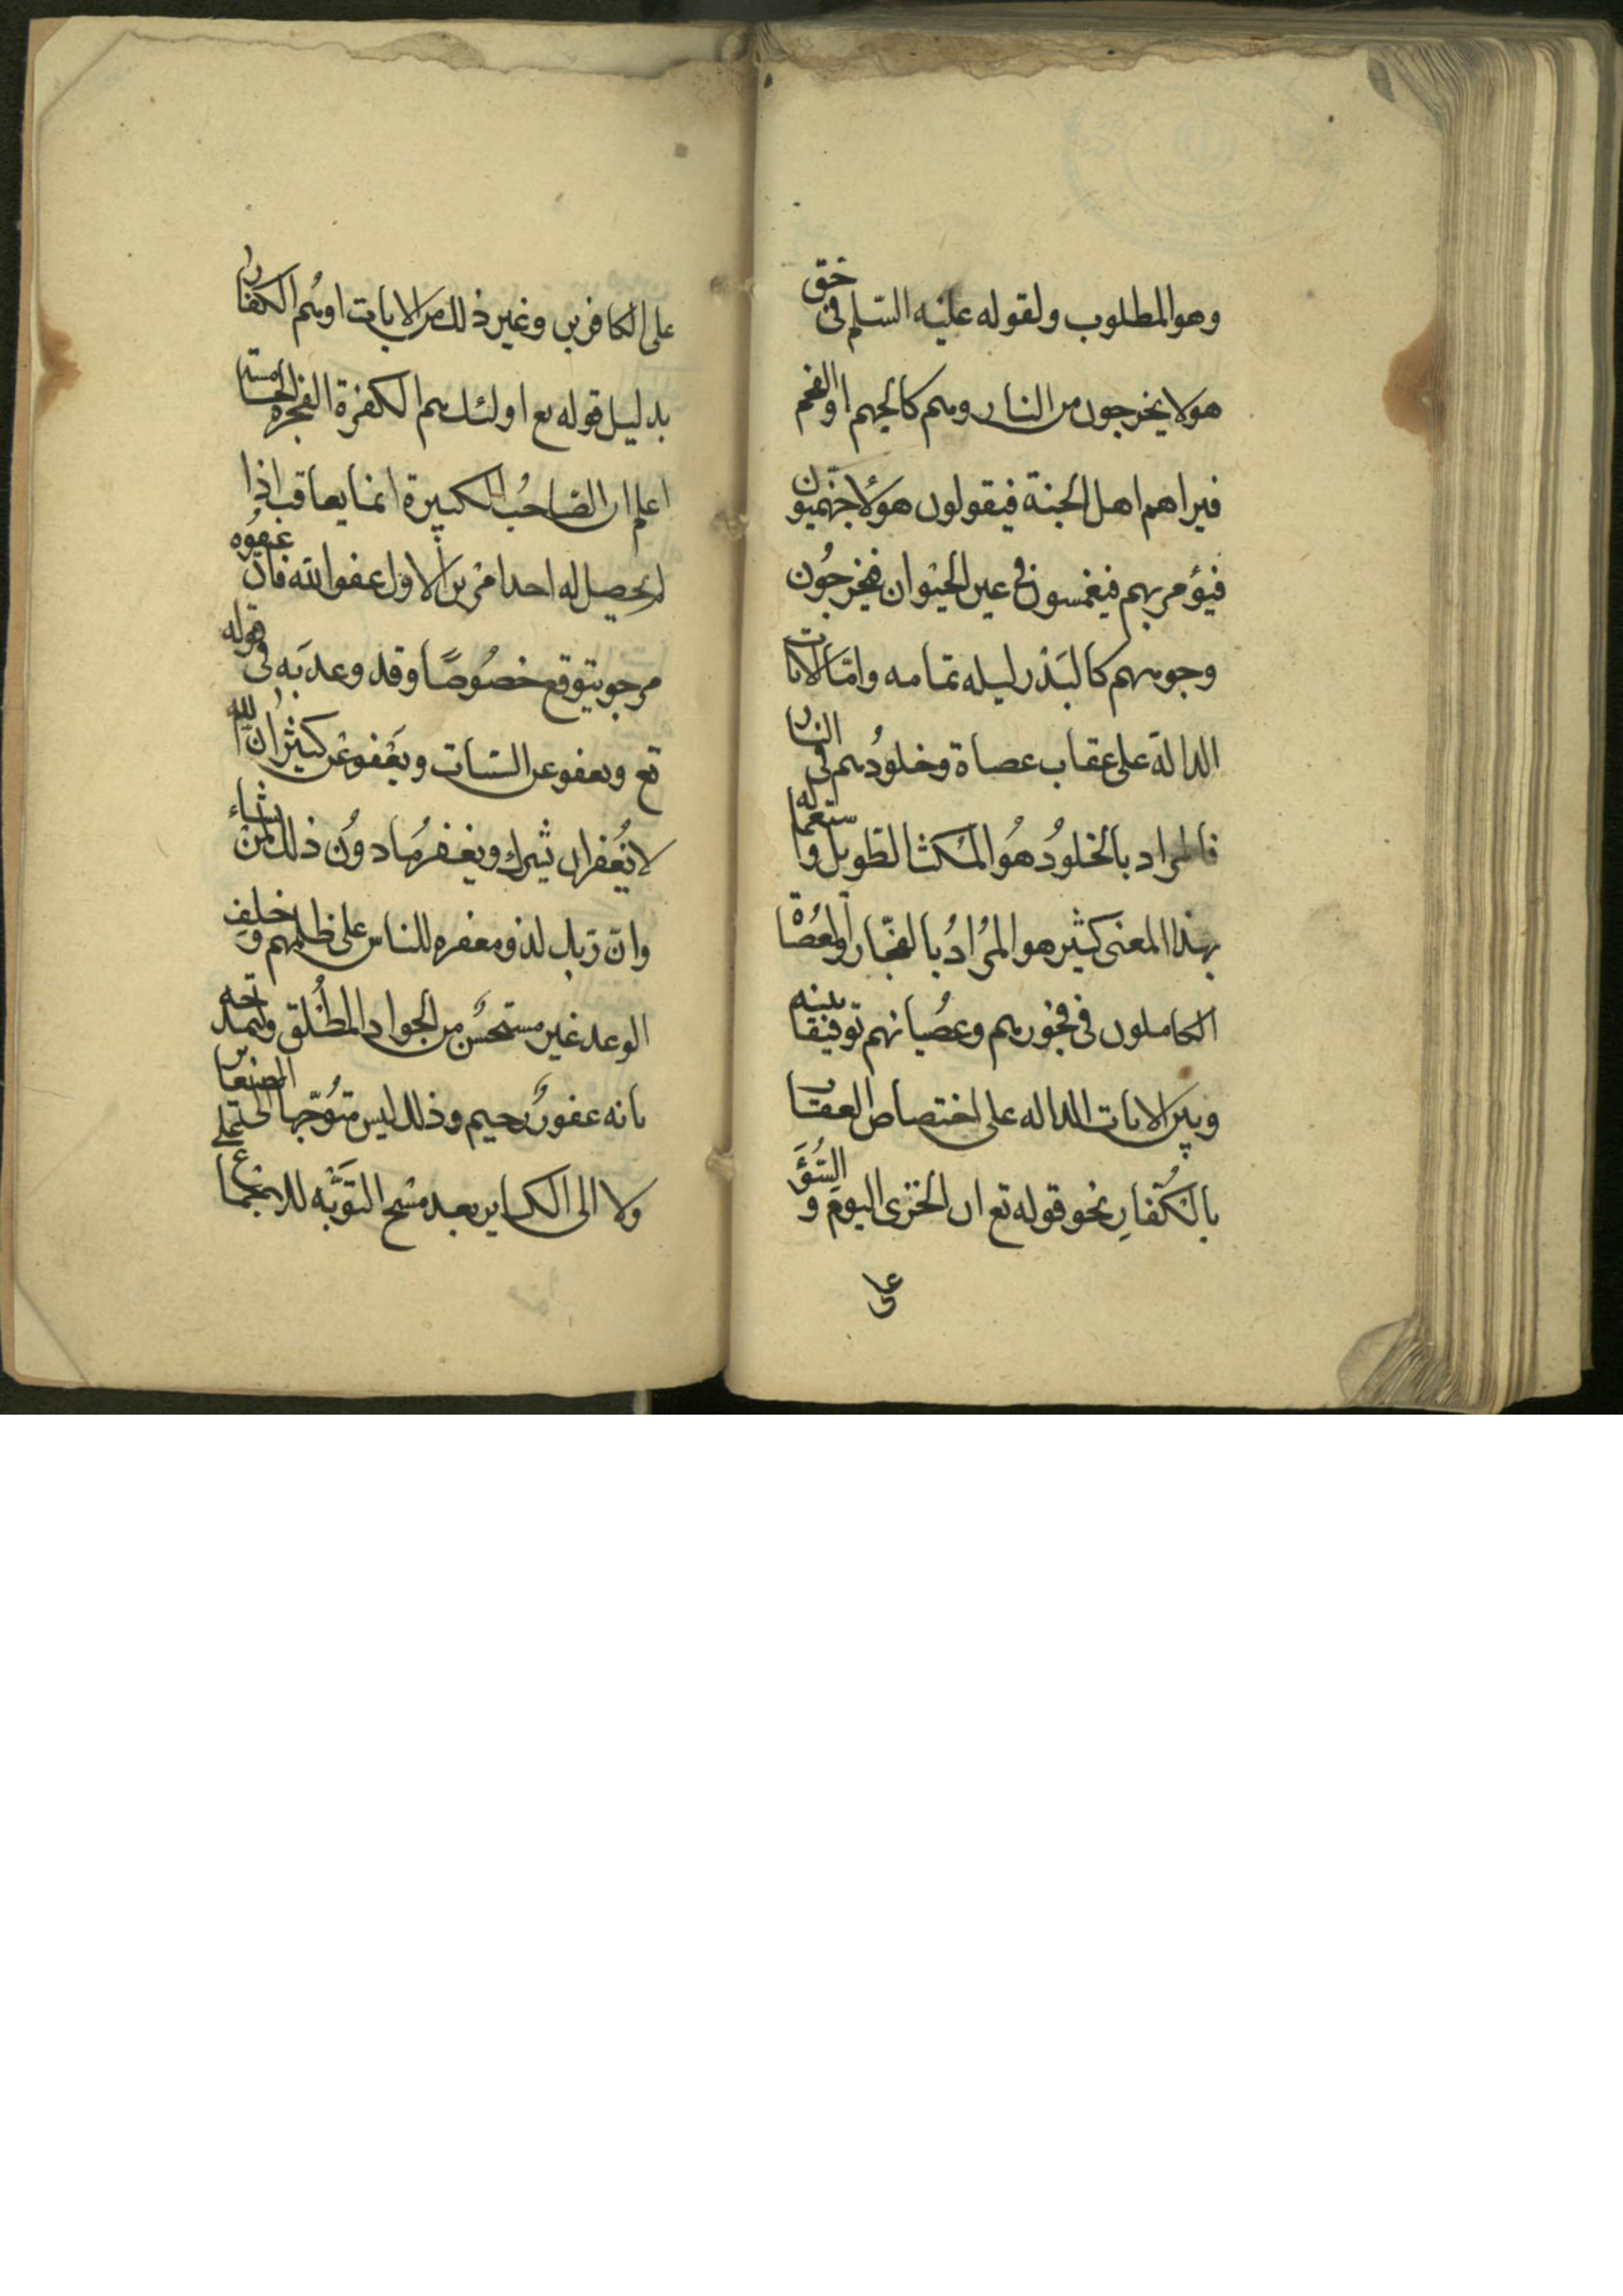 وهو المطلوب ولقوله عليه السلم في حق
هولا يخرجون من النار وهم كالجهم او الفحم
فيراهم اهل الجنة فيقولون هؤلا جهنميون
فيؤمر بهم فيغمسون في عين الحيوان فيخرجون
وجوههم كالبدر ليله تمامه واما الايات
الدالة على عقاب عصاة وخلودهم في النار
فالمراد بالخلود هو المكث الطويل واستعماله
بهذا المعنى كثير هو المراد بالفجار والعصاة
الكاملون في فجورهم وعصيانهم توفيقا بينه
وبين الايات الداله على اختصاص العقاب
بالكفار نحو قوله تع ان الخزى اليوم والسؤ
على
على الكافرين وغير ذلك من الايات او هم الكفار
بدليل قوله تع اولئك هم الكفرة الفجره
اعلم ان الصاحب الكبيرة انما يعاقب اذا
لم يحصل له احد امرين الاول عفو الله فان عفوه
مرجو يتوقع خصوصا وقد وعد به في قوله
تع ويعفو عن السيات ويعفو عن كثير ان الله
لا يغفر ان يشرك ويغفر ما دون ذلك لمن يشاء
وان ربك لذو مغفره للناس على ظلمهم وخلف
الوعد غير مستحسن من الجواد المطلق وتمدحه
بانه غفور رحيم وذلك ليس متوجها الى الصغاير
ولا الى الكباير بعد التوبه للاجماع